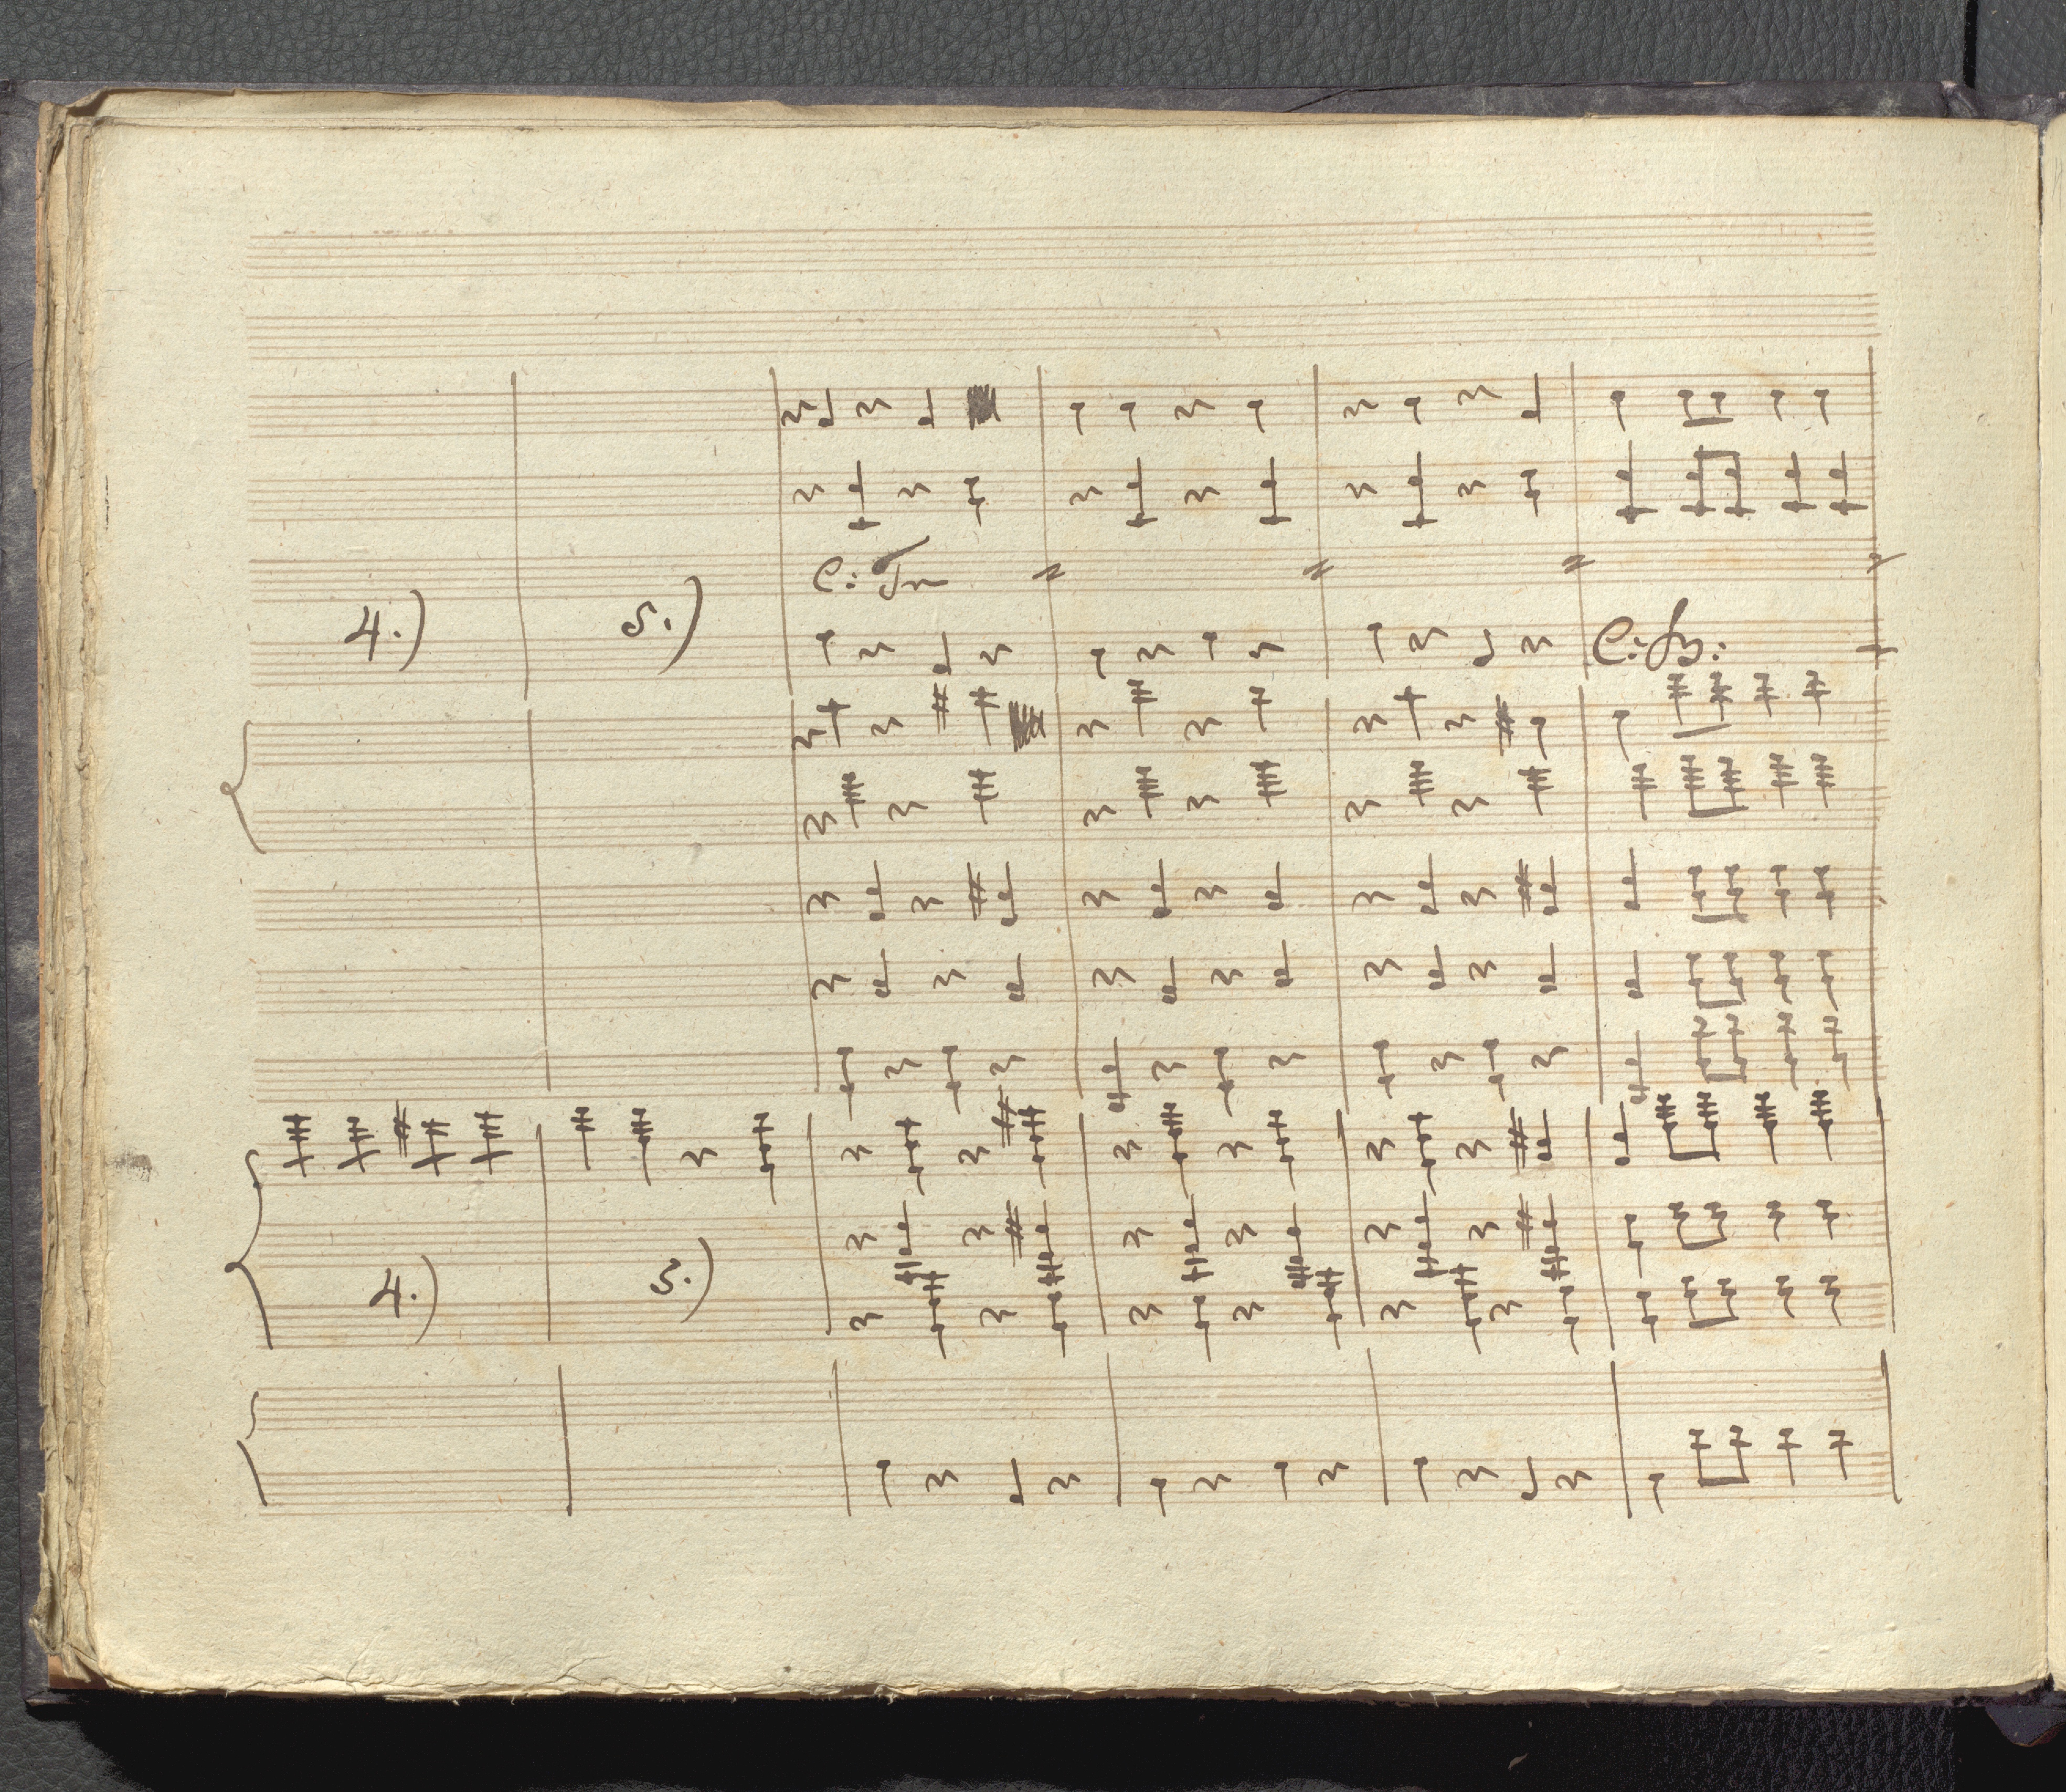 C: Tr
4.) 5.)
C: B:
4.) 5.)